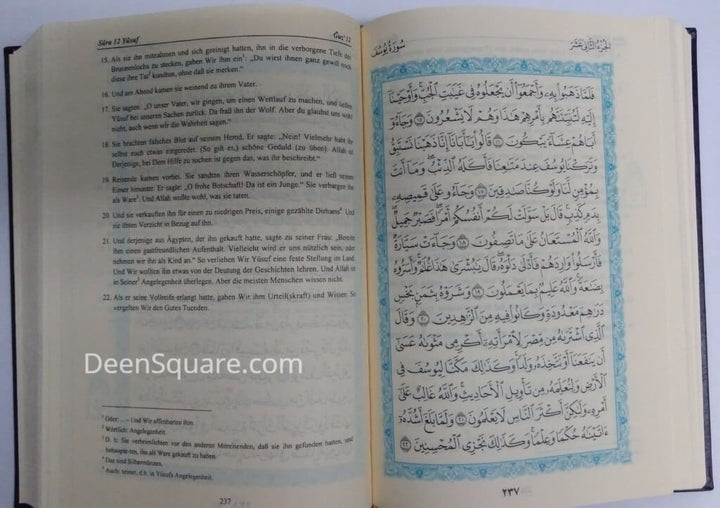 Sūra 12 Yūsuf
Ǧuzʼ 12
15. Als sie ihn mitnahmen und sich geeinigt hatten, ihn in die verborgene Tiefe des
Brunnenlochs zu stecken, gaben Wir ihm ein¹: "Du wirst ihnen ganz gewiß noch
diese ihre Tat² kundtun, ohne daß sie merken."
16. Und am Abend kamen sie weinend zu ihrem Vater.
17. Sie sagten: "O unser Vater, wir gingen, um einen Wettlauf zu machen, und ließen
Yūsuf bei unseren Sachen zurück. Da fraß ihn der Wolf. Aber du glaubst uns wohl
nicht, auch wenn wir die Wahrheit sagen."
18. Sie brachten falsches Blut auf seinem Hemd. Er sagte: "Nein! Vielmehr habt ihr
selbst euch etwas eingeredet. (So gilt es,) schöne Geduld (zu üben). Allah ist
Derjenige, bei Dem Hilfe zu suchen ist gegen das, was ihr beschreibt."
19. Reisende kamen vorbei. Sie sandten ihren Wasserschöpfer, und er ließ seinen
Eimer hinunter. Er sagte: "O frohe Botschaft! Da ist ein Junge." Sie verbargen ihn
als Ware³. Und Allah wußte wohl, was sie taten.
20. Und sie verkauften ihn für einen zu niedrigen Preis, einige gezählte Dirhams⁴. Und
sie übten Verzicht in Bezug auf ihn.
21. Und derjenige aus Ägypten, der ihn gekauft hatte, sagte zu seiner Frau: "Bereite
ihm einen gastfreundlichen Aufenthalt. Vielleicht wird er uns nützlich sein, oder
nehmen wir ihn als Kind an." So verliehen Wir Yūsuf eine feste Stellung im Land.
Und Wir wollten ihn etwas von der Deutung der Geschichten lehren. Und Allah ist
in Seiner⁵ Angelegenheit überlegen. Aber die meisten Menschen wissen nicht.
22. Als er seine Vollreife erlangt hatte, gaben Wir ihm Urteil(skraft) und Wissen. So
vergelten Wir den Gutes Tuenden.
DeenSquare.com
¹ Oder: ... – Und Wir offenbarten ihm
² Wörtlich: Angelegenheit.
³ D. h: Sie verheimlichten vor den anderen Mitreisenden, daß sie ihn gefunden hatten, und
behaupteten, ihn als Ware gekauft zu haben.
⁴ Das sind Silbermünzen.
⁵ Auch: seiner, d.h. in Yūsufs Angelegenheit.
237
سُورَةُ يُوسُفَ
الجُزءُ الثَّانِي عَشَرَ
فَلَمَّا ذَهَبُوا۟ بِهِۦ وَأَجْمَعُوٓا۟ أَن يَجْعَلُوهُ فِى غَيَـٰبَتِ ٱلْجُبِّ ۚ وَأَوْحَيْنَآ
إِلَيْهِ لَتُنَبِّئَنَّهُم بِأَمْرِهِمْ هَـٰذَا وَهُمْ لَا يَشْعُرُونَ ١٥ وَجَآءُوٓ
أَبَاهُمْ عِشَآءً يَبْكُونَ ١٦ قَالُوا۟ يَـٰٓأَبَانَآ إِنَّا ذَهَبْنَا نَسْتَبِقُ
وَتَرَكْنَا يُوسُفَ عِندَ مَتَـٰعِنَا فَأَكَلَهُ ٱلذِّئْبُ ۖ وَمَآ أَنتَ
بِمُؤْمِنٍ لَّنَا وَلَوْ كُنَّا صَـٰدِقِينَ ١٧ وَجَآءُو عَلَىٰ قَمِيصِهِۦ
بِدَمٍ كَذِبٍ ۚ قَالَ بَلْ سَوَّلَتْ لَكُمْ أَنفُسُكُمْ أَمْرًا ۖ فَصَبْرٌ جَمِيلٌ ۖ
وَٱللَّهُ ٱلْمُسْتَعَانُ عَلَىٰ مَا تَصِفُونَ ١٨ وَجَآءَتْ سَيَّارَةٌ
فَأَرْسَلُوا۟ وَارِدَهُمْ فَأَدْلَىٰ دَلْوَهُۥ ۖ قَالَ يَـٰبُشْرَىٰ هَـٰذَا غُلَـٰمٌ ۚ وَأَسَرُّوهُ
بِضَـٰعَةً ۚ وَٱللَّهُ عَلِيمٌۢ بِمَا يَعْمَلُونَ ١٩ وَشَرَوْهُ بِثَمَنٍۭ بَخْسٍ
دَرَٰهِمَ مَعْدُودَةٍ وَكَانُوا۟ فِيهِ مِنَ ٱلزَّٰهِدِينَ ٢٠ وَقَالَ
ٱلَّذِى ٱشْتَرَىٰهُ مِن مِّصْرَ لِٱمْرَأَتِهِۦٓ أَكْرِمِى مَثْوَىٰهُ عَسَىٰٓ
أَن يَنفَعَنَآ أَوْ نَتَّخِذَهُۥ وَلَدًا ۚ وَكَذَٰلِكَ مَكَّنَّا لِيُوسُفَ فِى
ٱلْأَرْضِ وَلِنُعَلِّمَهُۥ مِن تَأْوِيلِ ٱلْأَحَادِيثِ ۚ وَٱللَّهُ غَالِبٌ عَلَىٰٓ
أَمْرِهِۦ وَلَـٰكِنَّ أَكْثَرَ ٱلنَّاسِ لَا يَعْلَمُونَ ٢١ وَلَمَّا بَلَغَ أَشُدَّهُۥٓ
ءَاتَيْنَـٰهُ حُكْمًا وَعِلْمًا ۚ وَكَذَٰلِكَ نَجْزِى ٱلْمُحْسِنِينَ ٢٢
٢٣٧